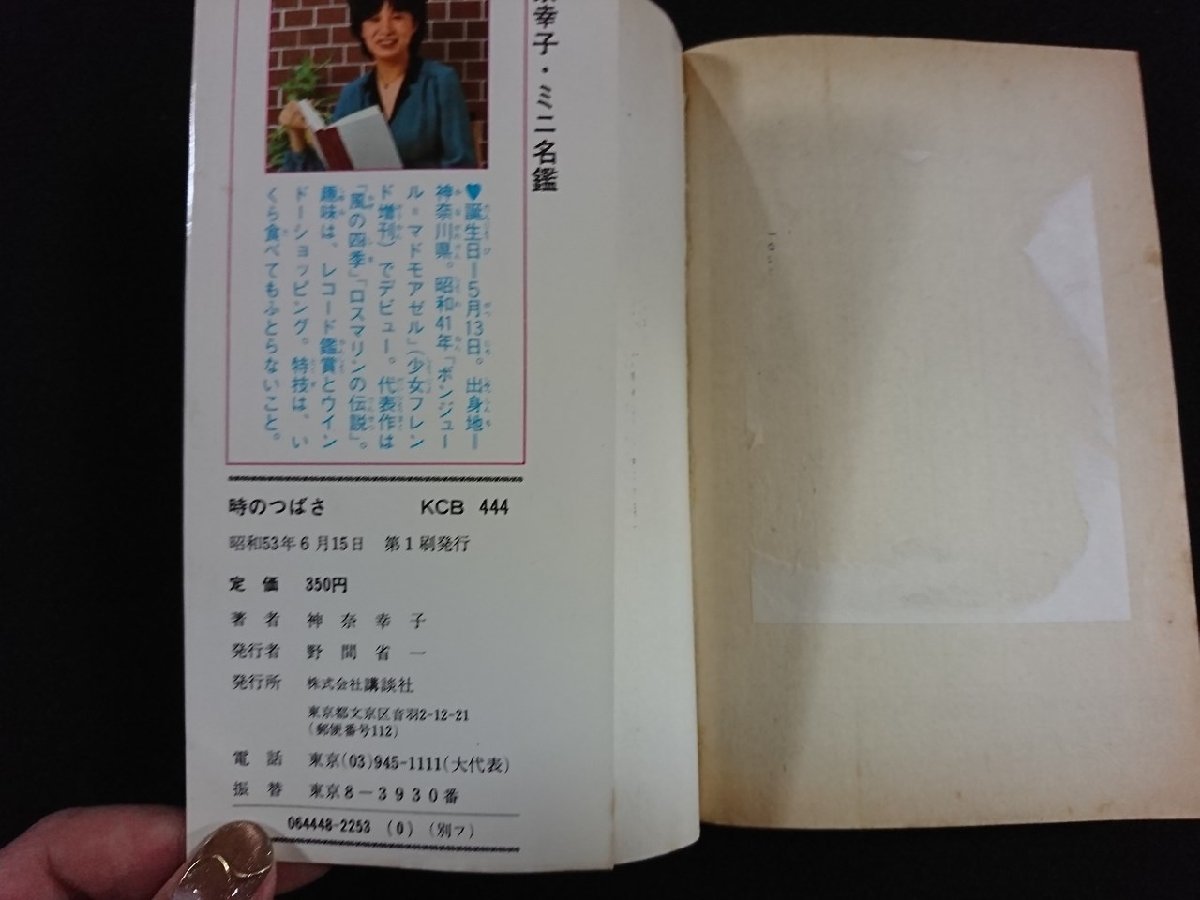 幸子・ミニ名鑑
♥誕生日―5月13日。出身地―
神奈川県。昭和41年「ボンジュー
ル・マドモアゼル」(少女フレン
ド増刊)でデビュー。代表作は
「風の四季」「ロスマリンの伝説」。
趣味は、レコード鑑賞とウイン
ドーショッピング。特技は、い
くら食べてもふとらないこと。
時のつばさ KCB 444
昭和53年6月15日 第1刷発行
定価 350円
著者 神奈幸子
発行者 野間省一
発行所 株式会社講談社
東京都文京区音羽2-12-21
(郵便番号112)
電話 東京(03)945-1111(大代表)
振替 東京8-3930番
064448-2253 (0) (別フ)